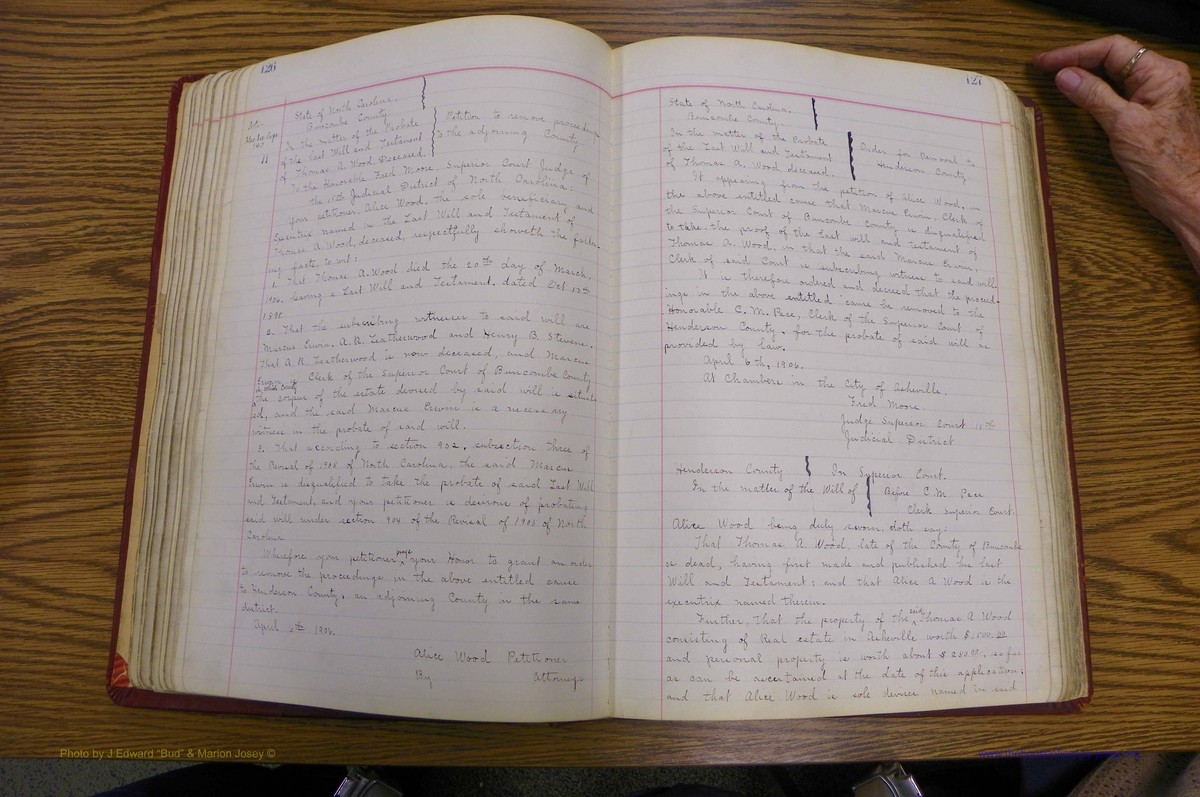 126
State of North Carolina.
Buncombe County.
In the matter of the Probate
of the Last Will and Testament
of Thomas A. Wood, Deceased.
Petition to remove proceedings
to the adjoining County
To the Honorable Fred Moore, Superior Court Judge of
the 15th Judicial District of North Carolina:
Your petitioner, Alice Wood, the sole beneficiary and
Executrix named in the Last Will and Testament of
Thomas A. Wood, deceased, respectfully showeth the follow-
ing facts, to wit:
1. That Thomas A. Wood died the 20th day of March,
1906, leaving a Last Will and Testament, dated Oct. 12th
2. That the subscribing witnesses to said will are
Marcus Erwin, A. R. Leatherwood and Henry B. Stevens.
That A. R. Leatherwood is now deceased, and Marcus
Erwin is Clerk of the Superior Court of Buncombe County
in which County
the corpus of the estate devised by said will is situat-
ed, and the said Marcus Erwin is a necessary
witness in the probate of said will.
3. That according to section 902, subsection three of
the Revisal of 1905 of North Carolina, the said Marcus
Erwin is disqualified to take the probate of said Last Will
and Testament, and your petitioner is desirous of probating
said will under section 904 of the Revisal of 1905 of North
Carolina
Wherefore your petitioner prays your Honor to grant an order
to remove the proceedings in the above entitled cause
to Henderson County, an adjoining County in the same
district.
April 1906.
Alice Wood Petitioner
By Attorneys
127
State of North Carolina.
Buncombe County.
In the matter of the Probate
of the Last Will and Testament
of Thomas A. Wood deceased.
Order for Removal to
Henderson County
It appearing from the petition of Alice Wood, in
the above entitled cause that Marcus Erwin, Clerk of
the Superior Court of Buncombe County is disqualified
to take the proof of the last will and testament of
Thomas A. Wood, in that the said Marcus Erwin,
Clerk of said Court is subscribing witness to said will.
It is therefore ordered and decreed that the proceed-
ings in the above entitled cause be removed to the
Honorable C. M. Pace, Clerk of the Superior Court of
Henderson County, for the probate of said will as
provided by law.
April 6th, 1906.
At Chambers in the City of Asheville.
Fred Moore
Judge Superior Court 15th
Judicial District
Henderson County In Superior Court.
In the matter of the Will of
Before C. M. Pace
Clerk Superior Court.
Alice Wood being duly sworn, doth say:
That Thomas A. Wood, late of the County of Buncombe
is dead, having first made and published his Last
Will and Testament; and that Alice A Wood is the
executrix named therein.
Further, That the property of the said Thomas A Wood
consisting of Real estate in Asheville worth
and personal property is worth about so far
as can be ascertained at the date of this application;
and that Alice Wood is sole devisee named in said
Photo by J Edward "Bud" & Marion Josey ©